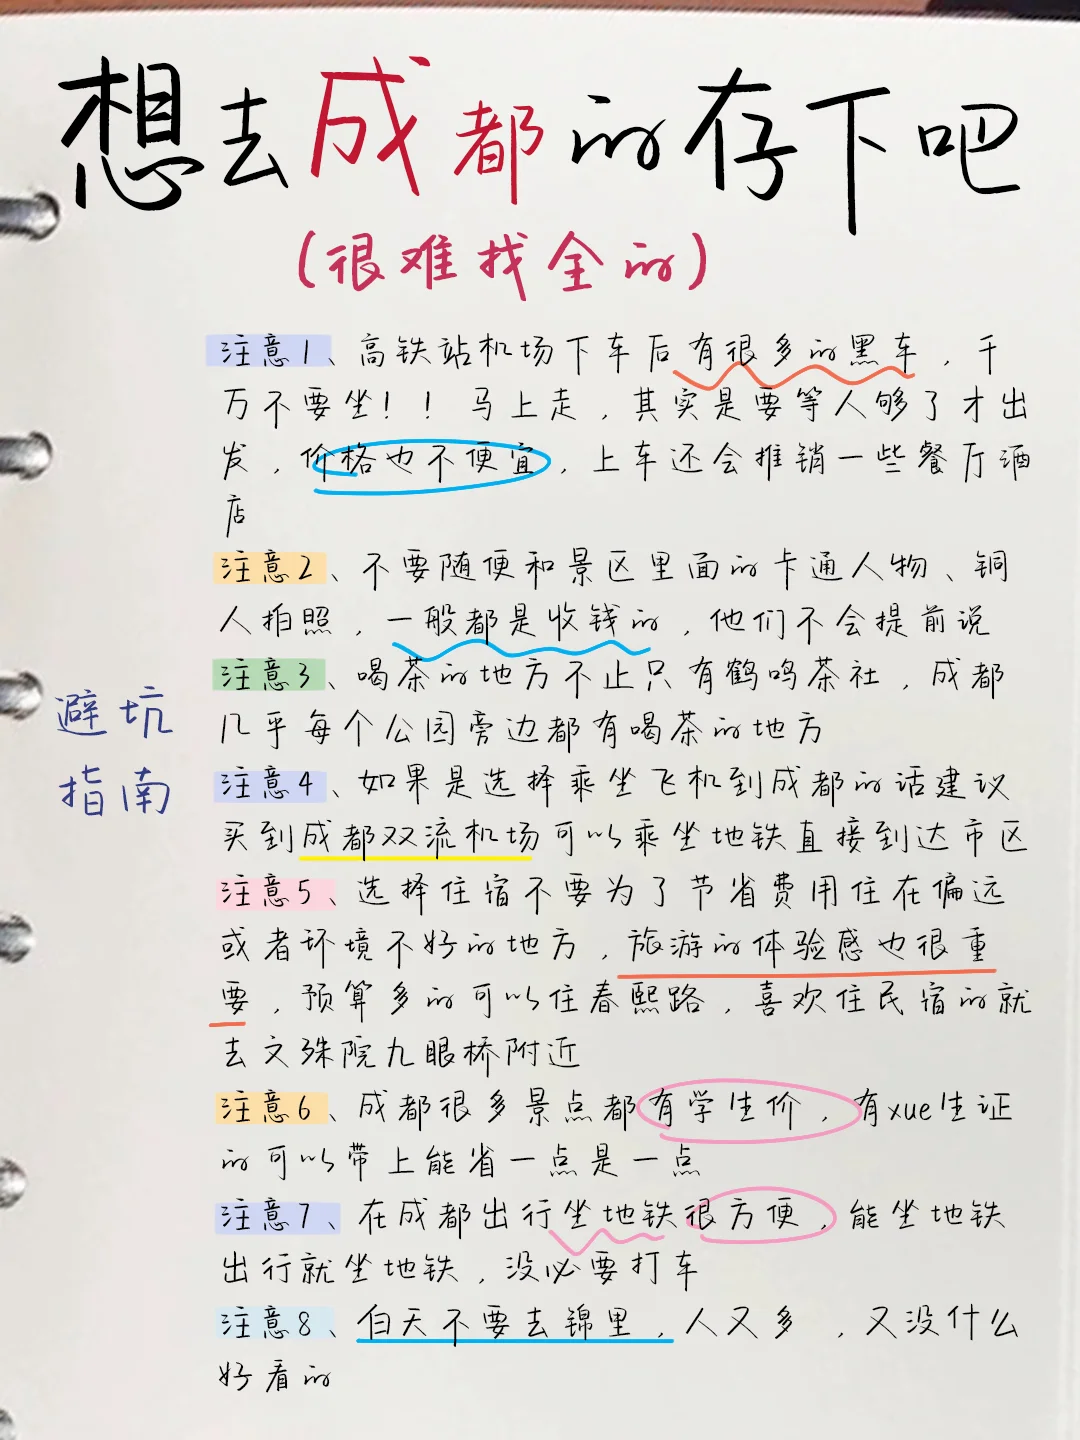 想去成都的存下吧
(很难找全的)
注意1、高铁站机场下车后有很多的黑车，千
万不要坐！！马上走，其实是要等人够了才出
发，价格也不便宜，上车还会推销一些餐厅酒
店
注意2、不要随便和景区里面的卡通人物、铜
人拍照，一般都是收钱的，他们不会提前说
注意3、喝茶的地方不止只有鹤鸣茶社，成都
几乎每个公园旁边都有喝茶的地方
避坑
指南
注意4、如果是选择乘坐飞机到成都的话建议
买到成都双流机场可以乘坐地铁直接到达市区
注意5、选择住宿不要为了节省费用住在偏远
或者环境不好的地方，旅游的体验感也很重
要，预算多的可以住春熙路，喜欢住民宿的就
去文殊院九眼桥附近
注意6、成都很多景点都有学生价，有xue生证
的可以带上能省一点是一点
注意7、在成都出行坐地铁很方便，能坐地铁
出行就坐地铁，没必要打车
注意8、白天不要去锦里，人又多，又没什么
好看的